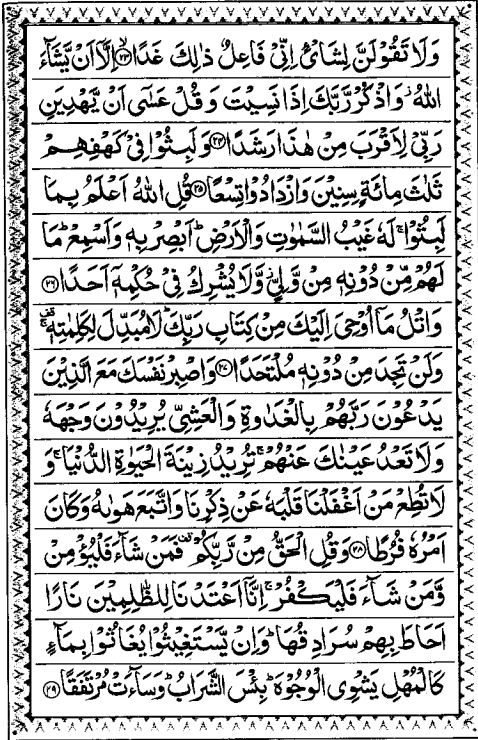 وَلَا تَقُوْلَنَّ لِشَایْءٍ اِنِّیْ فَاعِلٌ ذٰلِكَ غَدًا ﴿۲۳﴾ اِلَّآ اَنْ یَّشَآءَ
اللهُ وَاذْكُرْ رَّبَّكَ اِذَا نَسِیْتَ وَقُلْ عَسٰۤی اَنْ یَّهْدِیَنِ
رَبِّیْ لِاَقْرَبَ مِنْ هٰذَا رَشَدًا ﴿۲۴﴾ وَلَبِثُوْا فِیْ كَهْفِهِمْ
ثَلٰثَ مِائَةٍ سِنِیْنَ وَازْدَادُوْا تِسْعًا ﴿۲۵﴾ قُلِ اللهُ اَعْلَمُ بِمَا
لَبِثُوْا ۚ لَهٗ غَیْبُ السَّمٰوٰتِ وَالْاَرْضِ ؕ اَبْصِرْ بِهٖ وَاَسْمِعْ ؕ مَا
لَهُمْ مِّنْ دُوْنِهٖ مِنْ وَّلِیٍّ ؗ وَّلَا یُشْرِكُ فِیْ حُكْمِهٖۤ اَحَدًا ﴿۲۶﴾
وَاتْلُ مَاۤ اُوْحِیَ اِلَیْكَ مِنْ كِتَابِ رَبِّكَ ؕ لَا مُبَدِّلَ لِكَلِمٰتِهٖ ۚ قف
وَلَنْ تَجِدَ مِنْ دُوْنِهٖ مُلْتَحَدًا ﴿۲۷﴾ وَاصْبِرْ نَفْسَكَ مَعَ الَّذِیْنَ
یَدْعُوْنَ رَبَّهُمْ بِالْغَدٰوةِ وَالْعَشِیِّ یُرِیْدُوْنَ وَجْهَهٗ
وَلَا تَعْدُ عَیْنٰكَ عَنْهُمْ ۚ تُرِیْدُ زِیْنَةَ الْحَیٰوةِ الدُّنْیَا ۚ وَ
لَا تُطِعْ مَنْ اَغْفَلْنَا قَلْبَهٗ عَنْ ذِكْرِنَا وَاتَّبَعَ هَوٰىهُ وَكَانَ
اَمْرُهٗ فُرُطًا ﴿۲۸﴾ وَقُلِ الْحَقُّ مِنْ رَّبِّكُمْ قف فَمَنْ شَآءَ فَلْیُؤْمِنْ
وَّمَنْ شَآءَ فَلْیَكْفُرْ ۚ اِنَّاۤ اَعْتَدْنَا لِلظّٰلِمِیْنَ نَارًا
اَحَاطَ بِهِمْ سُرَادِقُهَا ؕ وَاِنْ یَّسْتَغِیْثُوْا یُغَاثُوْا بِمَآءٍ
كَالْمُهْلِ یَشْوِی الْوُجُوْهَ ؕ بِئْسَ الشَّرَابُ ؕ وَسَآءَتْ مُرْتَفَقًا ﴿۲۹﴾